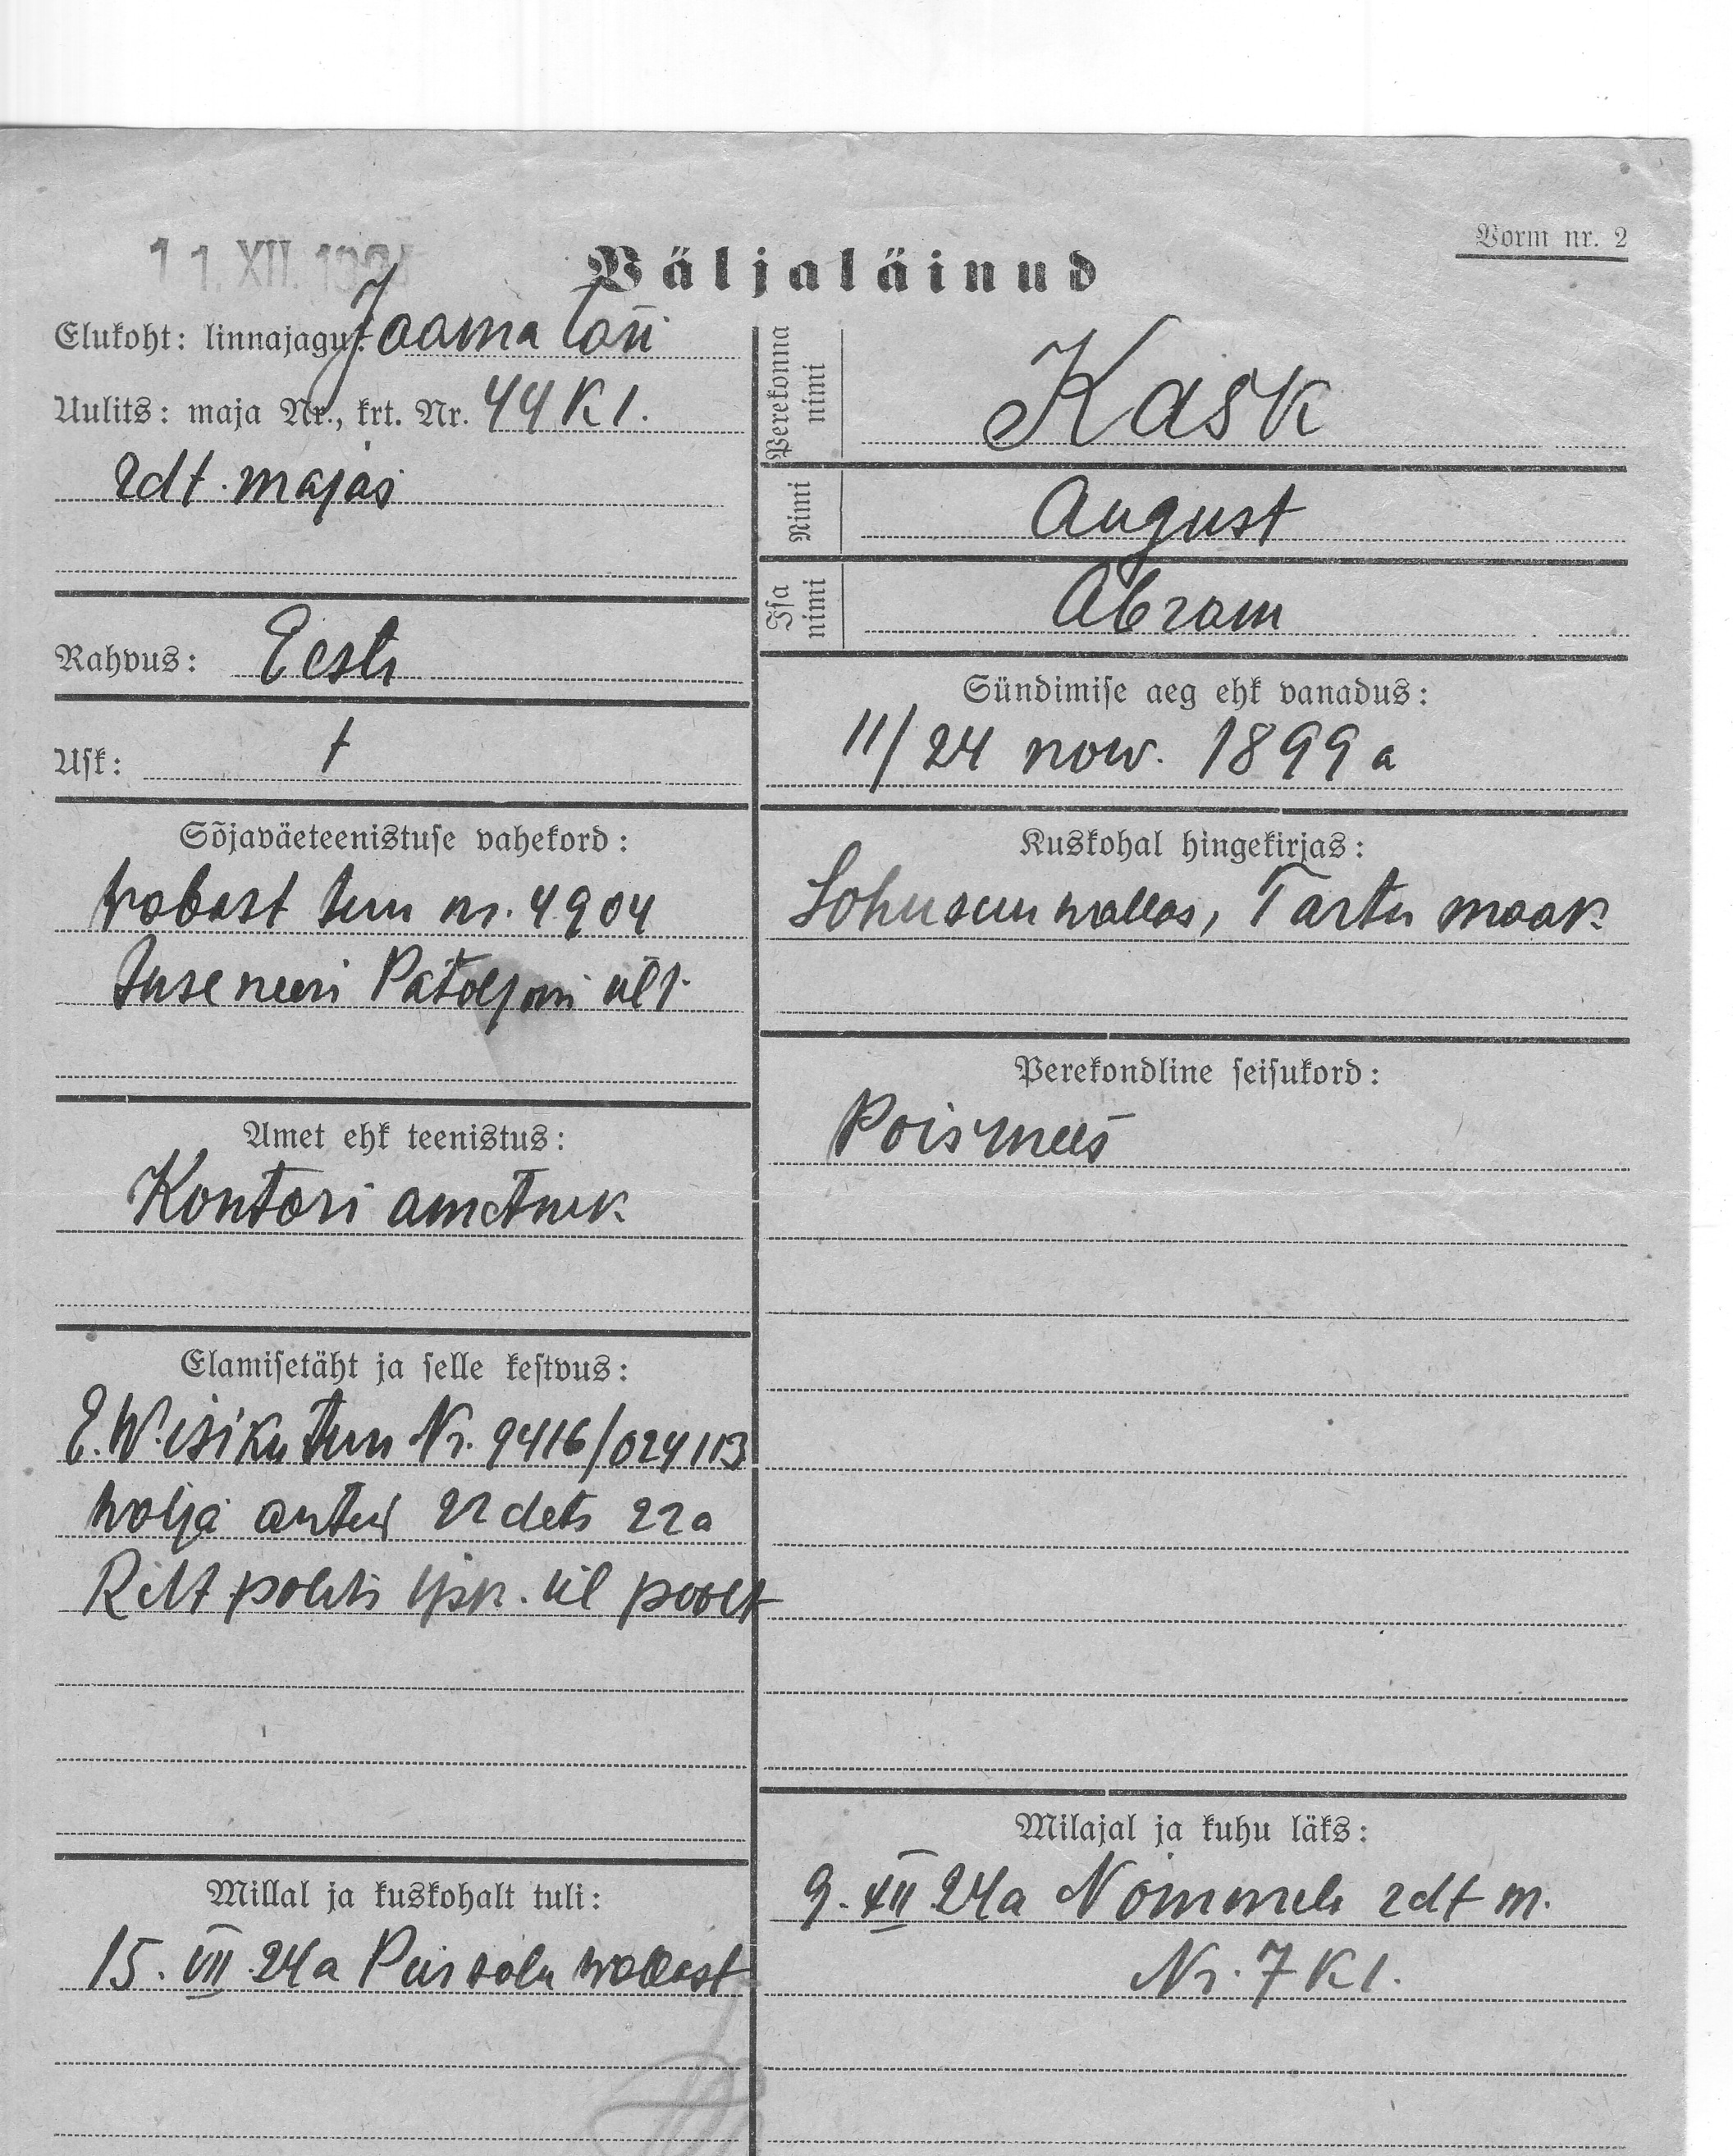 Vorm nr. 2
11. XII. 1924
Väljaläinud
Elukoht: linnajagu: Jaama
Uulits: maja Nr., krt. Nr. 44 K 1.
rdt. majas
Rahvus: Eesti
Usk: †
Sõjaväeteenistuse vahekord:
wabast tun nr. 4904
Inseneeri Pataljoni ült
Amet ehk teenistus:
Kontori ametnik
Elamisetäht ja selle kestvus:
E.W. isiku tun Nr. 9416/024113
wälja antud 22 dets 22a
politi ül poolt
Millal ja kuskohalt tuli:
15. VII 24a Piirsalu wallast
Perekonna nimi
Kask
Nimi
August
Isa nimi
Abram
Sündimise aeg ehk vanadus:
11/24 now. 1899 a
Kuskohal hingekirjas:
Lohusuu wallas, Tartu maak
Perekondline seisukord:
Poismees
Milajal ja kuhu läks:
9. XII 24a Nõmmele rdt m.
Nr. 7 K 1.